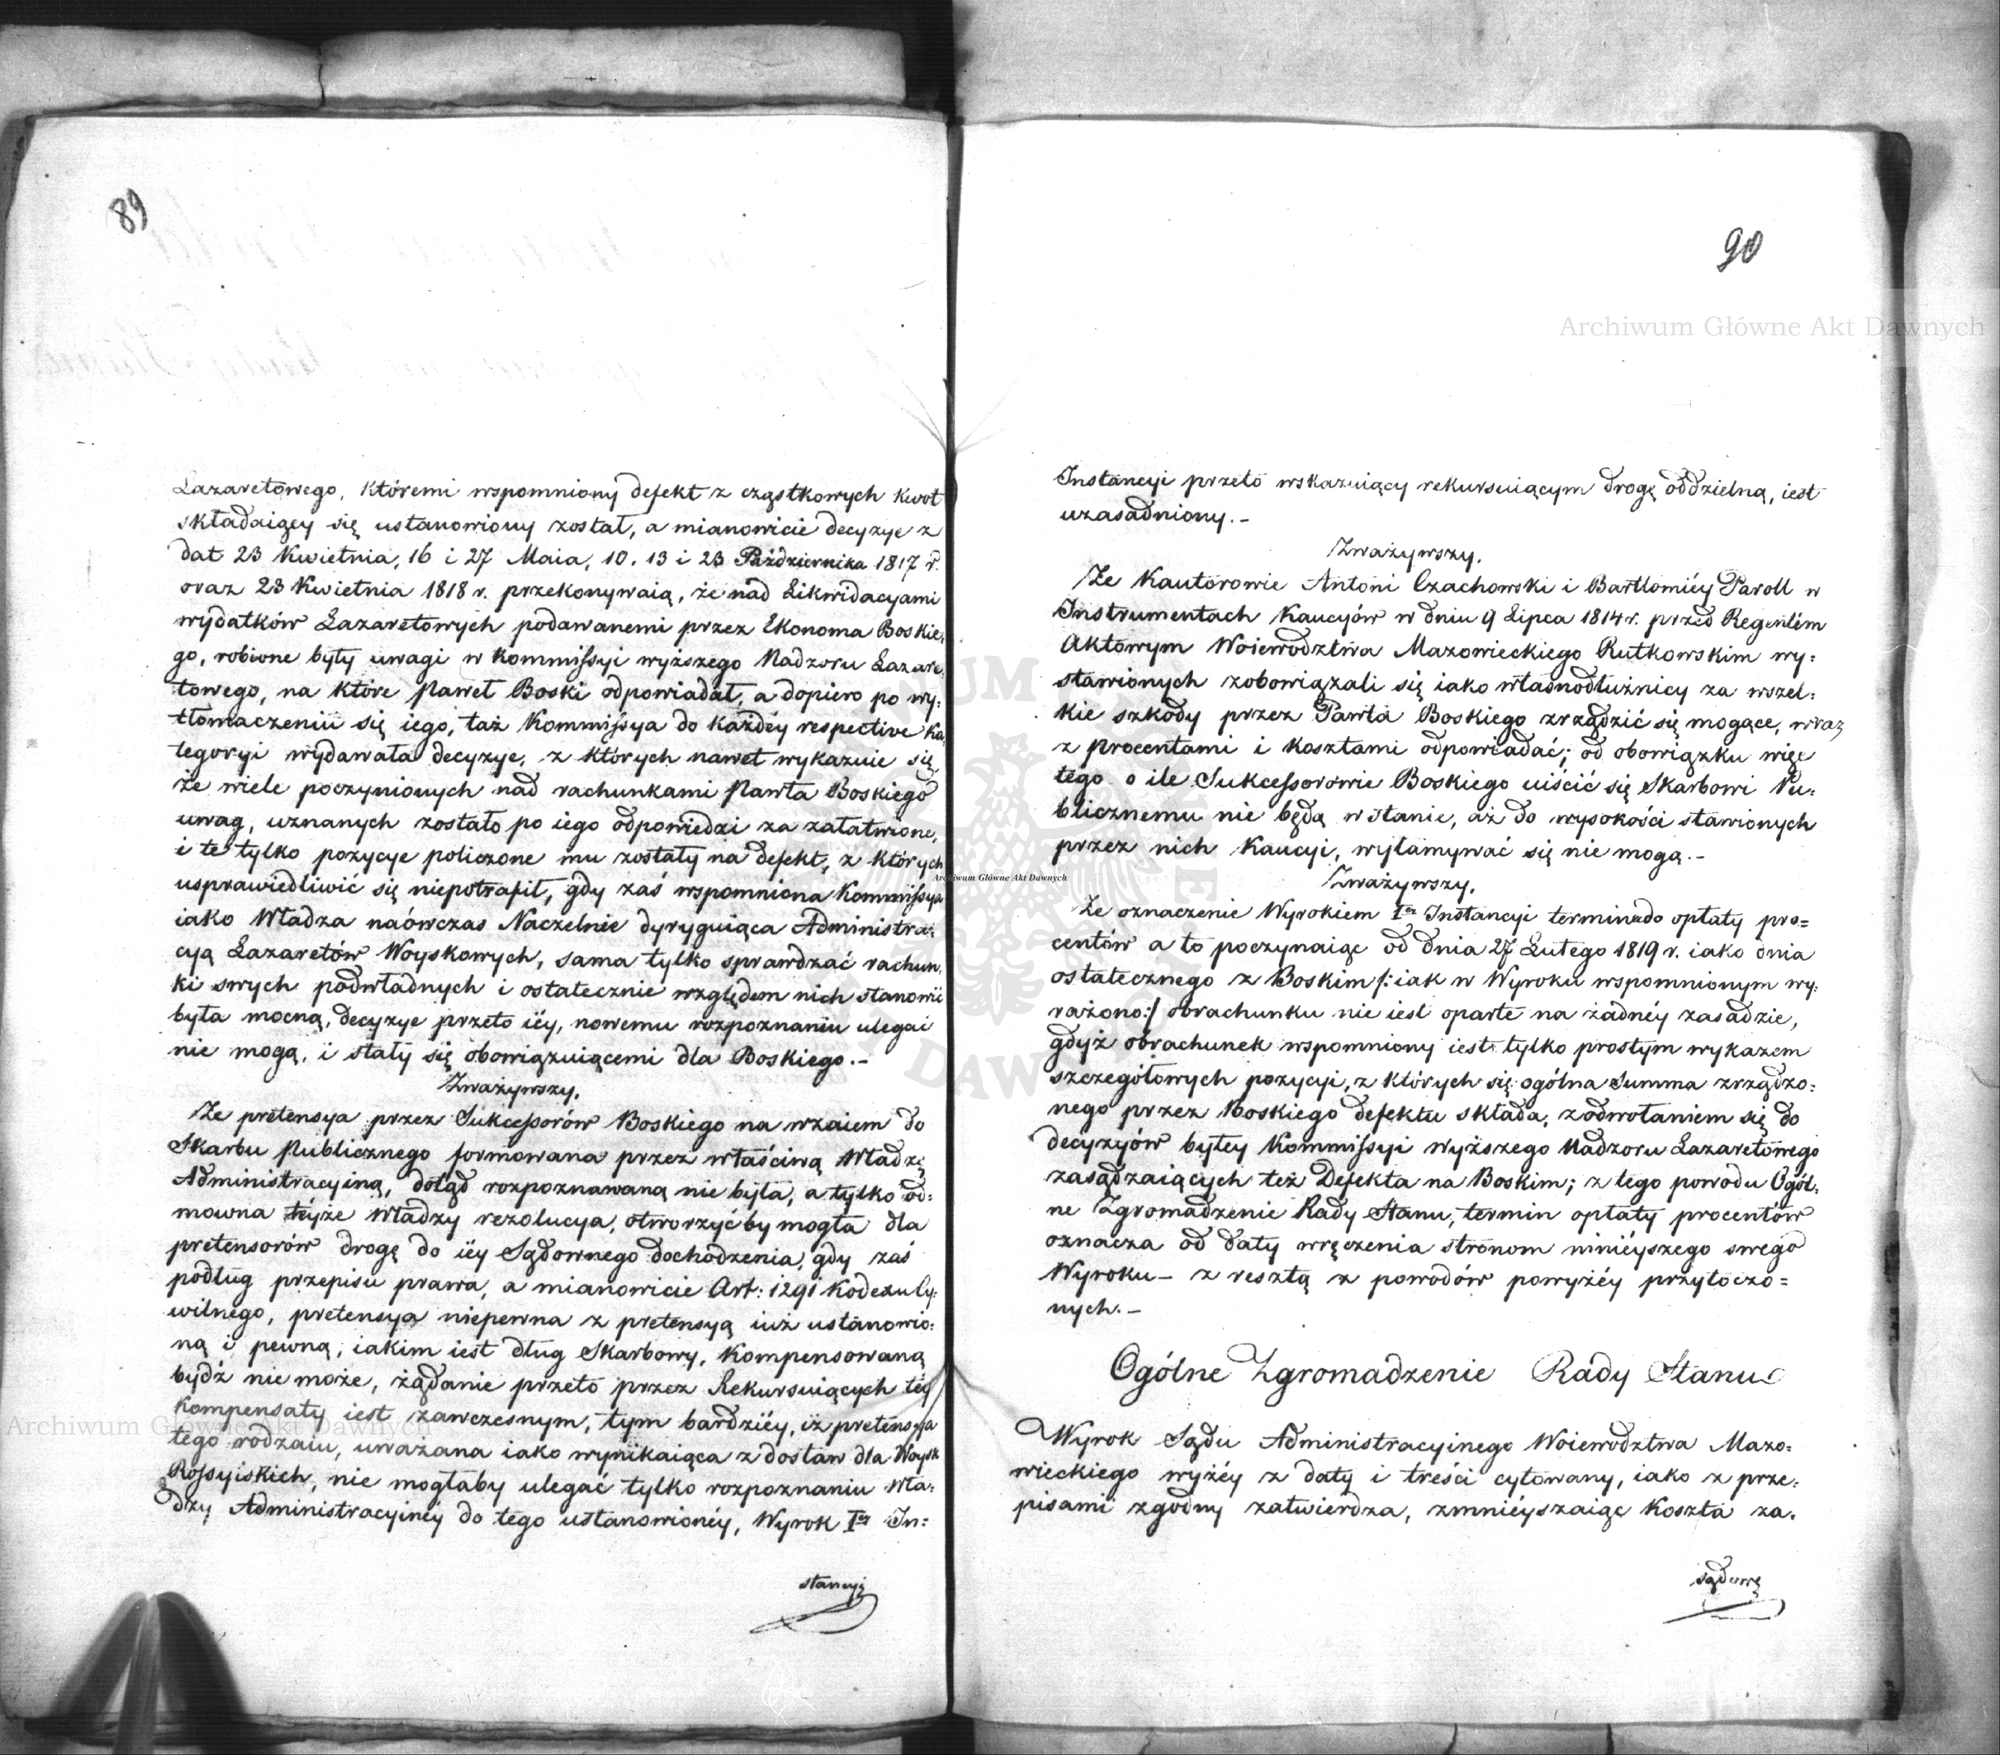 89
Lazaretowego, któremi wspomniony defekt z cząstkowych kwot
składaiący się ustanowiony został, a mianowicie decyzye z
dat 23 Kwietnia, 16 i 27 Maia, 10. 13 i 23 Października 1817 r.
oraz 23 Kwietnia 1818 r. przekonywaią, że nad Likwidacyami
wydatków Lazaretowych podawanemi przez Ekonoma Boskie,
go, robione były uwagi w Kommissyi wyższego Nadzoru Lazare,
towego, na które Paweł Boski odpowiadał, a dopiero po wy,
tłomaczeniu się iego, taż Kommissya do każdéy respective Ka,
tegoryi wydawała decyzye, z których nawet wykazuie się,
że wiele poczynionych nad rachunkami Pawła Boskiego
uwag, uznanych zostało po iego odpowiedzi za załatwione,
i te tylko pozycye policzone mu zostały na defekt, z których
usprawiedliwić się niepotrafił, gdy zaś wspomniona Kommissya
iako Władza naówczas Naczelnie dyryguiąca Administra,
cyą Lazaretów Woyskowych, sama tylko sprawdzać rachun,
ki swych podwładnych i ostatecznie względem nich stanowić
była mocną, decyzye przeto iéy, nowemu rozpoznaniu ulegać
nie mogą, i stały się obowiązuiącemi dla Boskiego.–
Zważywszy.
Że pretensya przez Sukcessorów Boskiego na wzaiem do
Skarbu Publicznego formowana przez właściwą Władzę
Administracyiną, dotąd rozpoznawaną nie była, a tylko od=
mowna téyże Władzy rezolucya, otworzyćby mogła dla
pretensorów drogę do iéy Sądownego dochodzenia, gdy zaś
podług przepisu prawa, a mianowicie Art: 1291 Kodexu Cy,
wilnego, pretensya niepewna z pretensyą iuż ustanowio:
ną i pewną, iakim iest dług Skarbowy, kompensowaną
bydź nie może, żądanie przeto przez Rekursuiących téy
Kompensaty iest zawczesnym, tym bardziéy, iż pretensya
tego rodzaiu, uważana iako wynikaiąca z dostaw dla Woysk
Rossyiskich, nie mogłaby ulegać tylko rozpoznaniu Wła=
dzy Administracyinéy do tego ustanowionéy, Wyrok Iéy In=
stancyi
90
Instancyi przeto wskazuiący rekursuiącym drogę oddzielną, iest
uzasadniony.–
Zważywszy.
Że Kautorowie Antoni Czachowski i Bartłomiéy Paroll w
Instrumentach Kaucyów w dniu 9 Lipca 1814 r. przed Regentem
Aktowym Woiewództwa Mazowieckiego Rutkowskim wy=
stawionych zobowiązali się iako własnodłużnicy za wszel=
kie szkody przez Pawła Boskiego zrządzić się mogące, wraz
z procentami i kosztami odpowiadać; od obowiązku więc
tego o ile Sukcessorowie Boskiego uiścić się Skarbowi Pu=
blicznemu nie będą w stanie, aż do wysokości stawionych
przez nich Kaucyi, wyłamywać się nie mogą.–
Zważywszy.
Że oznaczenie Wyrokiem Iéy Instancyi terminu do opłaty pro=
centów a to poczynaiąc od dnia 27 Lutego 1819 r. iako dnia
ostatecznego z Boskim /: iak w Wyroku wspomnionym wy,
rażono :/ obrachunku nie iest oparte na żadnéy zasadzie,
gdyż obrachunek wspomniony iest tylko prostym wykazem
szczegółowych pozycyi, z których się ogólna Summa zrządzo=
nego przez Boskiego defektu składa, z odwołaniem się do
decyzyów byłey Kommissyi Wyższego Nadzoru Lazaretowego
zasądzaiących też Defekta na Boskim; z tego powodu Ogól=
ne Zgromadzenie Rady Stanu, termin opłaty procentów
oznacza od daty wręczenia stronom ninieyszego swego
Wyroku – z resztą z powodów powyżéy przytoczo=
nych.–
Ogólne Zgromadzenie Rady Stanu
Wyrok Sądu Administracyinego Woiewództwa Mazo=
wieckiego wyżéy z daty i treści cytowany, iako z prze=
pisami zgodny zatwierdza, zmniéyszaiąc koszta za.
sądowe
Archiwum Główne Akt Dawnych
Archiwum Główne Akt Dawnych
Archiwum Główne Akt Dawnych